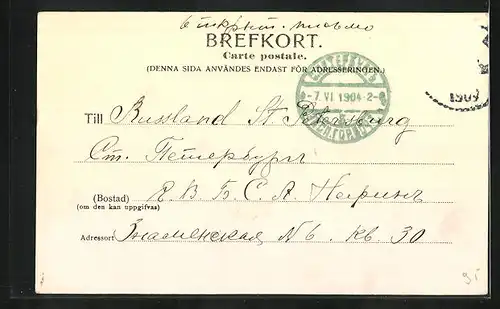 открыт. письмо
BREFKORT.
Carte postale.
(DENNA SIDA ANVÄNDES ENDAST FÖR ADRESSERINGEN.)
-7 VI 1904-2-
1904
Till Russland St. Petersburg
Ст. Петербургъ
(Bostad) Е. В. Б. С. А.
(om den kan uppgifvas)
Adressort Знаменская N 6. кв. 30